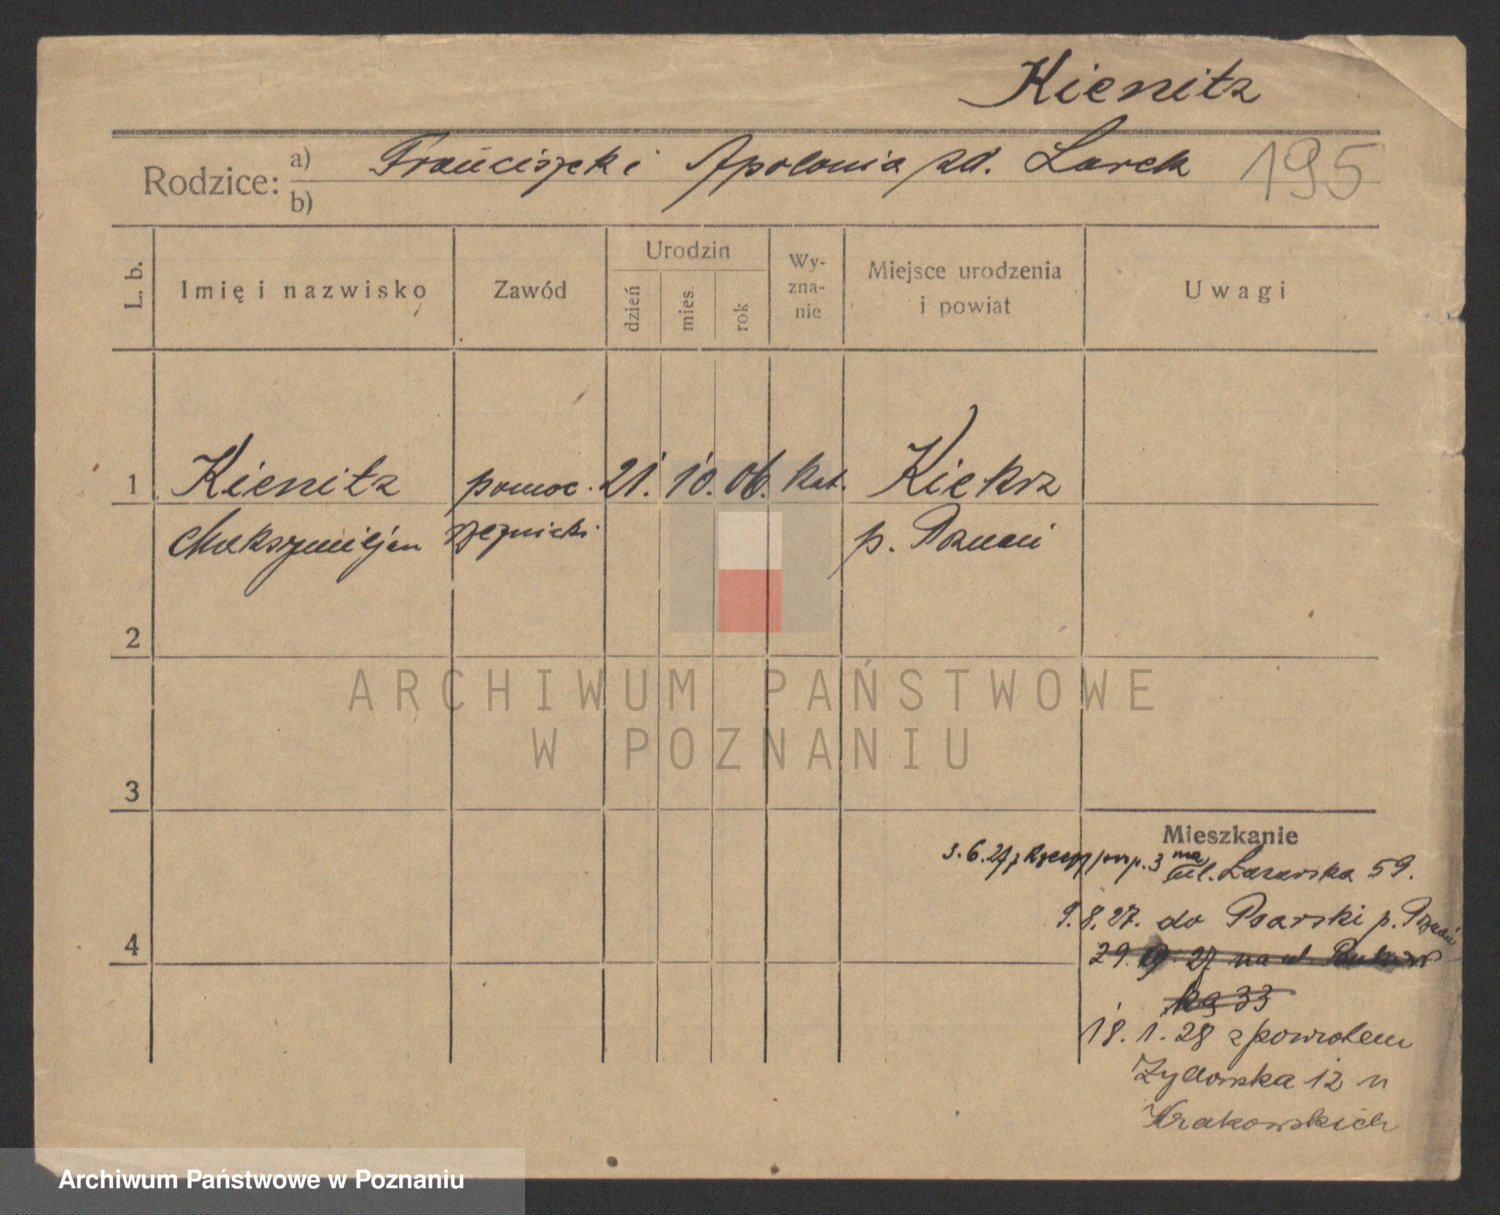 Kienitz
Rodzice: a) Franciszek i Apolonia zd. Larek
b)
195
L. b.
Imię i nazwisko
Zawód
Urodzin
dzień
mies
rok
Wy-
zna-
nie
Miejsce urodzenia
i powiat
Uwagi
1 Kienitz pomoc. 21. 10. 06. kat. Kiekrz
Maksymiljan rzeźnicki p. Poznań
2
3
4
ARCHIWUM PAŃSTWOWE
W POZNANIU
Mieszkanie
3.6.27 z p. 3 na ul. Łazarska 59.
9.8.27. do p. Poznań
29. 27 na ul. Bukow
ka 33
18.1.28 z powrotem
Żydowska 12 u
Krakowskich
Archiwum Państwowe w Poznaniu